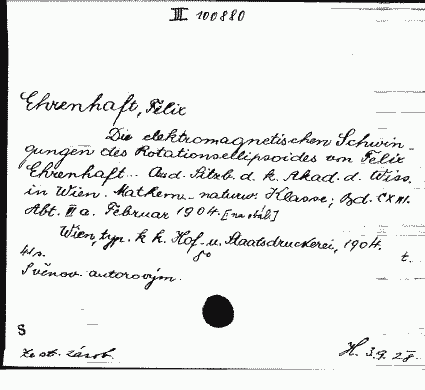 III 100880
Ehrenhaft, Felix
Die elektromagnetischen Schwin-
gungen des Rotationsellipsoides von Felix
Ehrenhaft... Aus d. Sitzb. d. k. Akad. d. Wiss.
in Wien. Mathem.-naturw. Klasse; Bd. CXIII.
Abt. II a. Februar 1904. [na obál.]
Wien, typ. k. k. Hof- u. Staatsdruckerei, 1904.
41 s. 8° t.
S věnov. autorovým.
S
Ze st. zásob. H. 3.9.28.